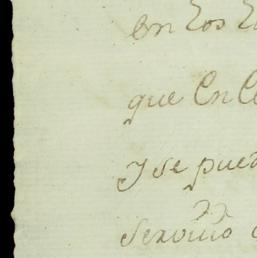 en Los
que En
Y se pued
servicio